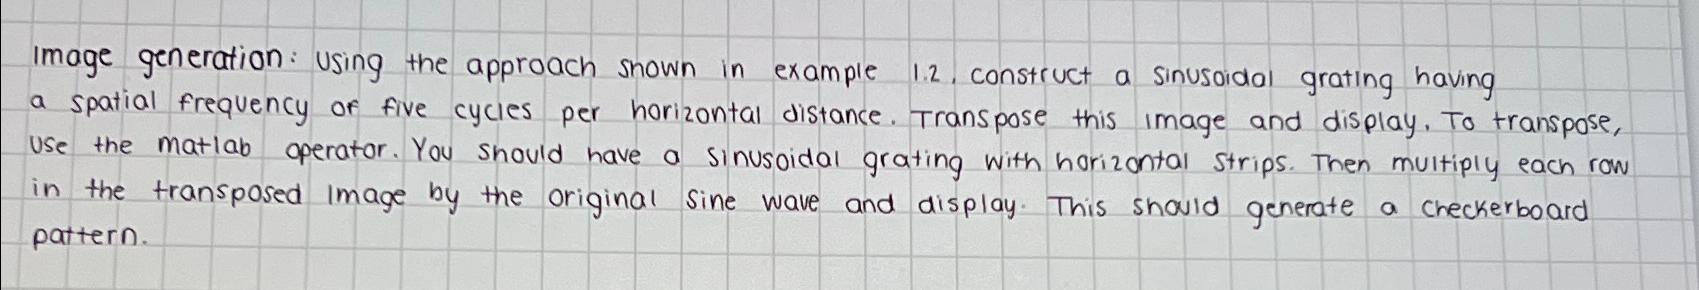 Image generation: Using the approach shown in example 1.2, construct a sinusoidal grating having
a spatial frequency of five cycles per horizontal distance. Transpose this image and display. To transpose,
use the matlab operator. You should have a sinusoidal grating with horizontal strips. Then multiply each row
in the transposed image by the original sine wave and display. This should generate a checkerboard
pattern.